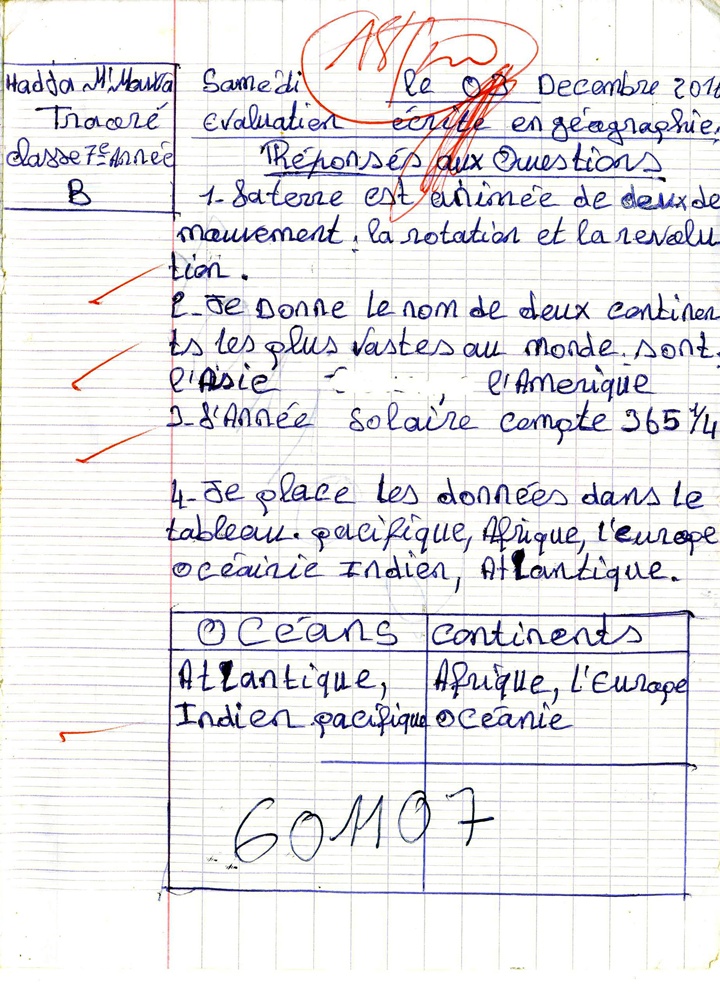 Hadja M'Mawa
Traoré
classe 7e Année
B
Samedi le 03 Decembre 2016
Evaluation écrite en géagraphie.
Réponsés aux Questions
1- Saterre est animée de deux de
mauvement. la rotation et la revalu
tion.
2- Je Donne le nom de deux continen
ts les plus Vastes au monde. sont.
l'Asie l'Amerique
3- S'Année Solaire compte 365 1/4
4- Je place les données dans le
tableau. pacifique, Afrique, l'europe
océainie Indien, Atlantique.
Océans continents
Atlantique, Afrique, l'Europe
Indien pacifique océanie
601107